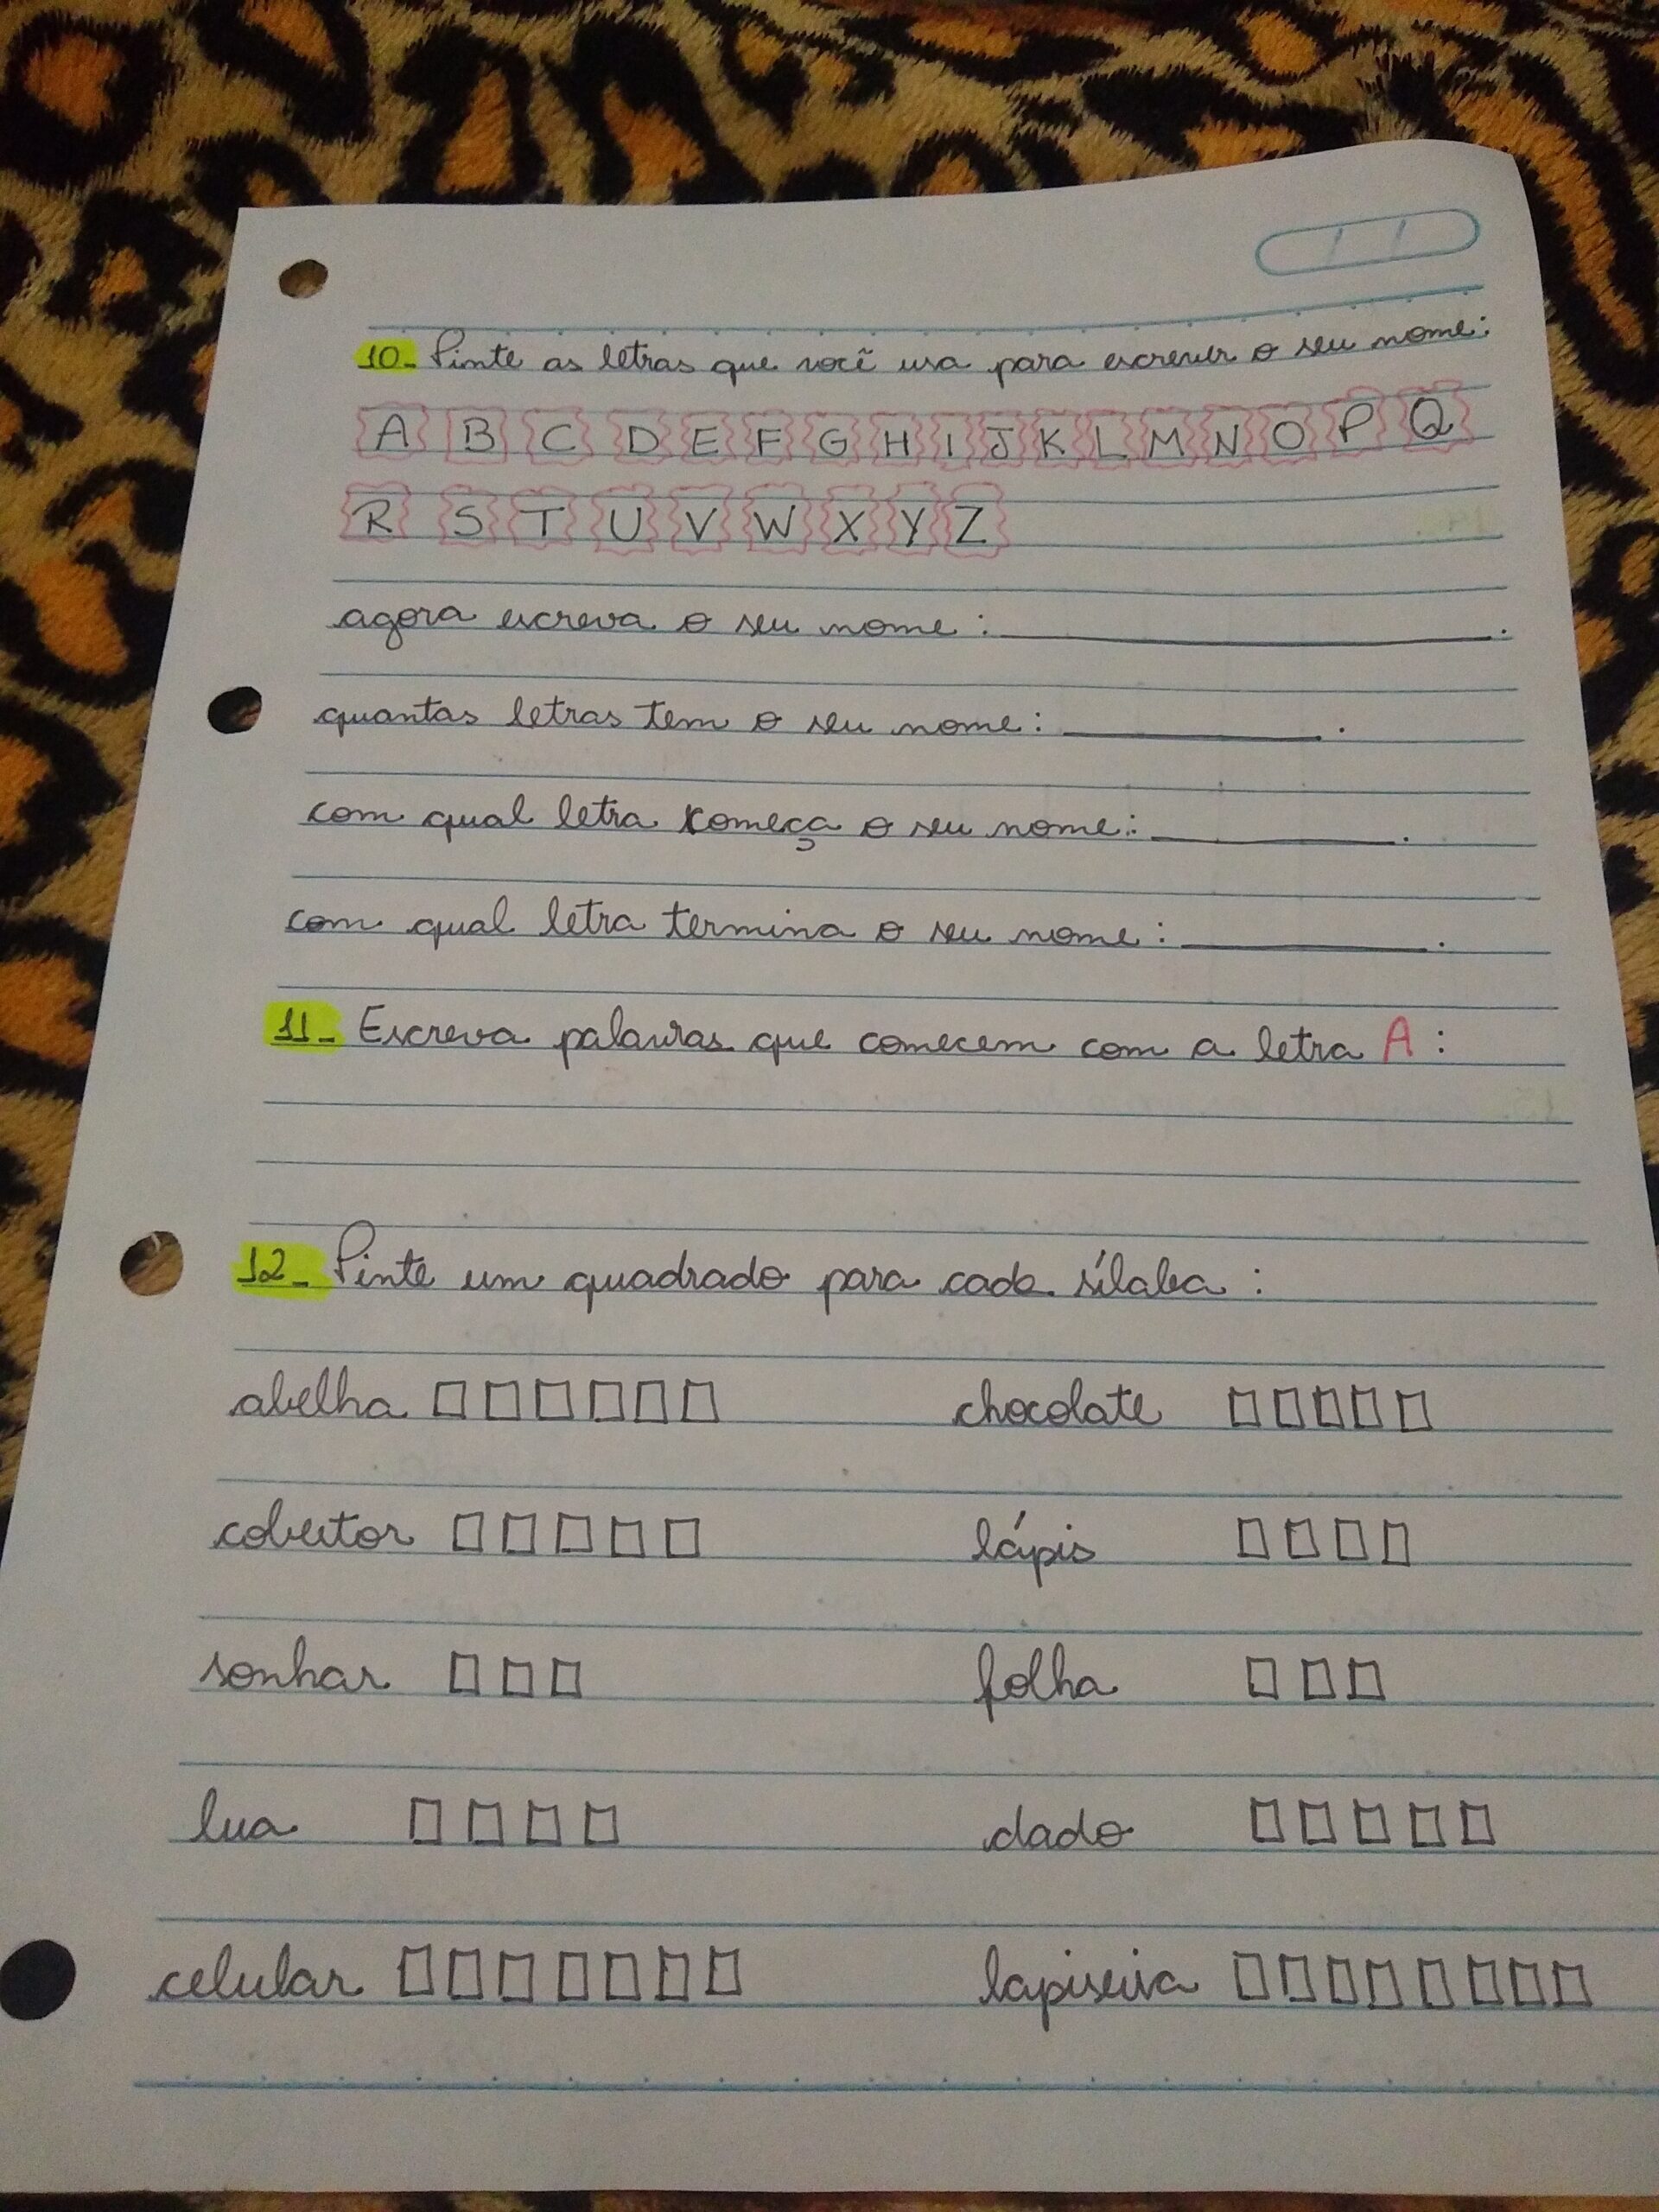 10- Pinte as letras que você usa para escrever o seu nome:
A B C D E F G H I J K L M N O P Q
R S T U V W X Y Z
agora escreva o seu nome: ____________.
quantas letras tem o seu nome: ________.
com qual letra começa o seu nome: ________.
com qual letra termina o seu nome: ________.
11- Escreva palavras que comecem com a letra A:
12- Pinte um quadrado para cada sílaba:
abelha □□□□□□ chocolate □□□□□
cobertor □□□□□ lápis □□□□
sonhar □□□ folha □□□
lua □□□□ dado □□□□□
celular □□□□□□□ lapiseira □□□□□□□□